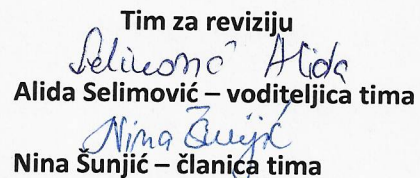 Tim za reviziju
Selimović Alida
Alida Selimović – voditeljica tima
Nina Šunjić
Nina Šunjić – članica tima